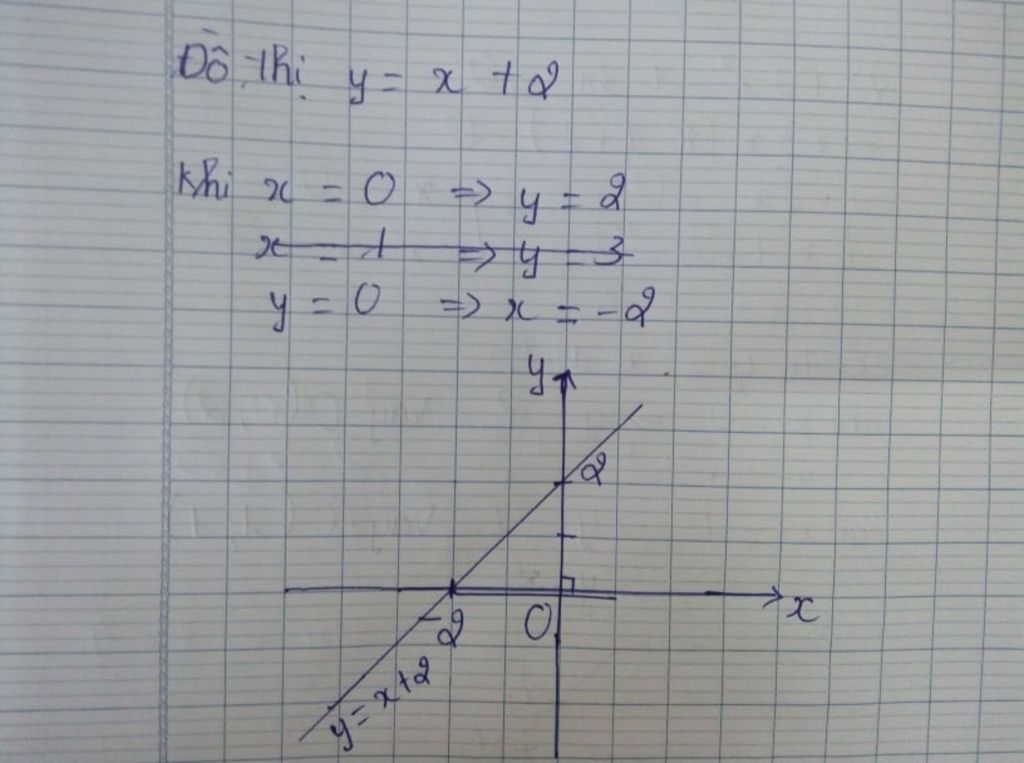 Đồ thị y = x + 2
Khi x = 0 => y = 2
x = 1 => y = 3
y = 0 => x = -2
y
2
-2
0
x
y = x+2